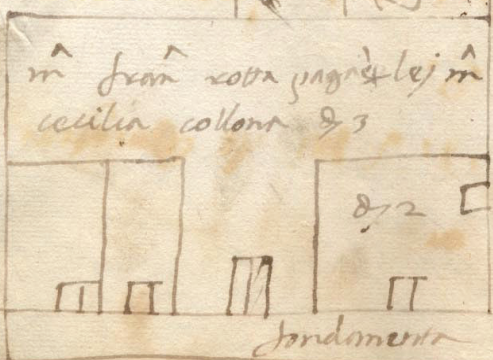 mᵃ franᵃ rotta paga p̱ lej mᵃ
cecilia collona ∂ 3
∂ 2
fondamenta